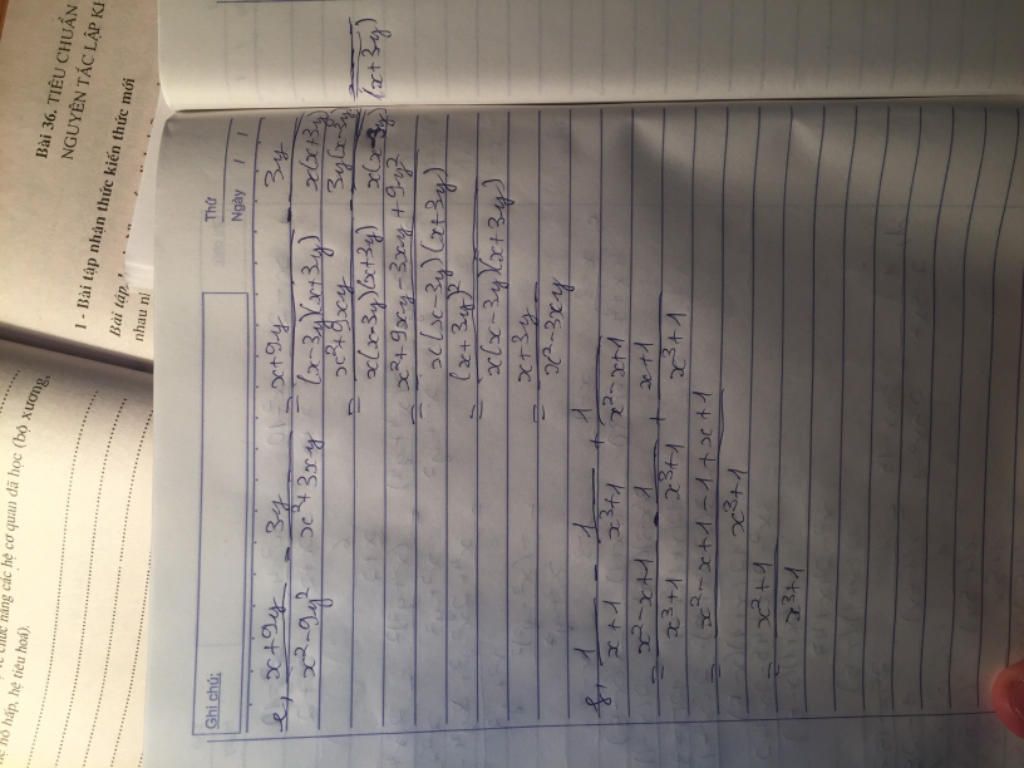 Bài 36. TIÊU CHUẨN
NGUYÊN TẮC LẬP KH
1 - Bài tập nhận thức kiến thức mới
Bài tập
nhau
chức năng các hệ cơ quan đã học (bộ xương,
hô hấp, hệ tiêu hoá).
Ghi chú:
Thứ
Ngày / /
e, (x+9y)/(x²-9y²) - 3y/(x²+3xy) = (x+9y)/((x-3y)(x+3y)) - 3y/(x(x+3y))
= (x²+9xy)/(x(x-3y)(x+3y)) - 3y(x-3y)/(x(x-3y)(x+3y))
= (x²+9xy-3xy+9y²)/(x(x-3y)(x+3y))
= (x+3y)²/(x(x-3y)(x+3y))
= (x+3y)/(x²-3xy)
f, 1/(x+1) - 1/(x³+1) + 1/(x²-x+1)
= (x²-x+1)/(x³+1) - 1/(x³+1) + (x+1)/(x³+1)
= (x²-x+1-1+x+1)/(x³+1)
= (x²+1)/(x³+1)